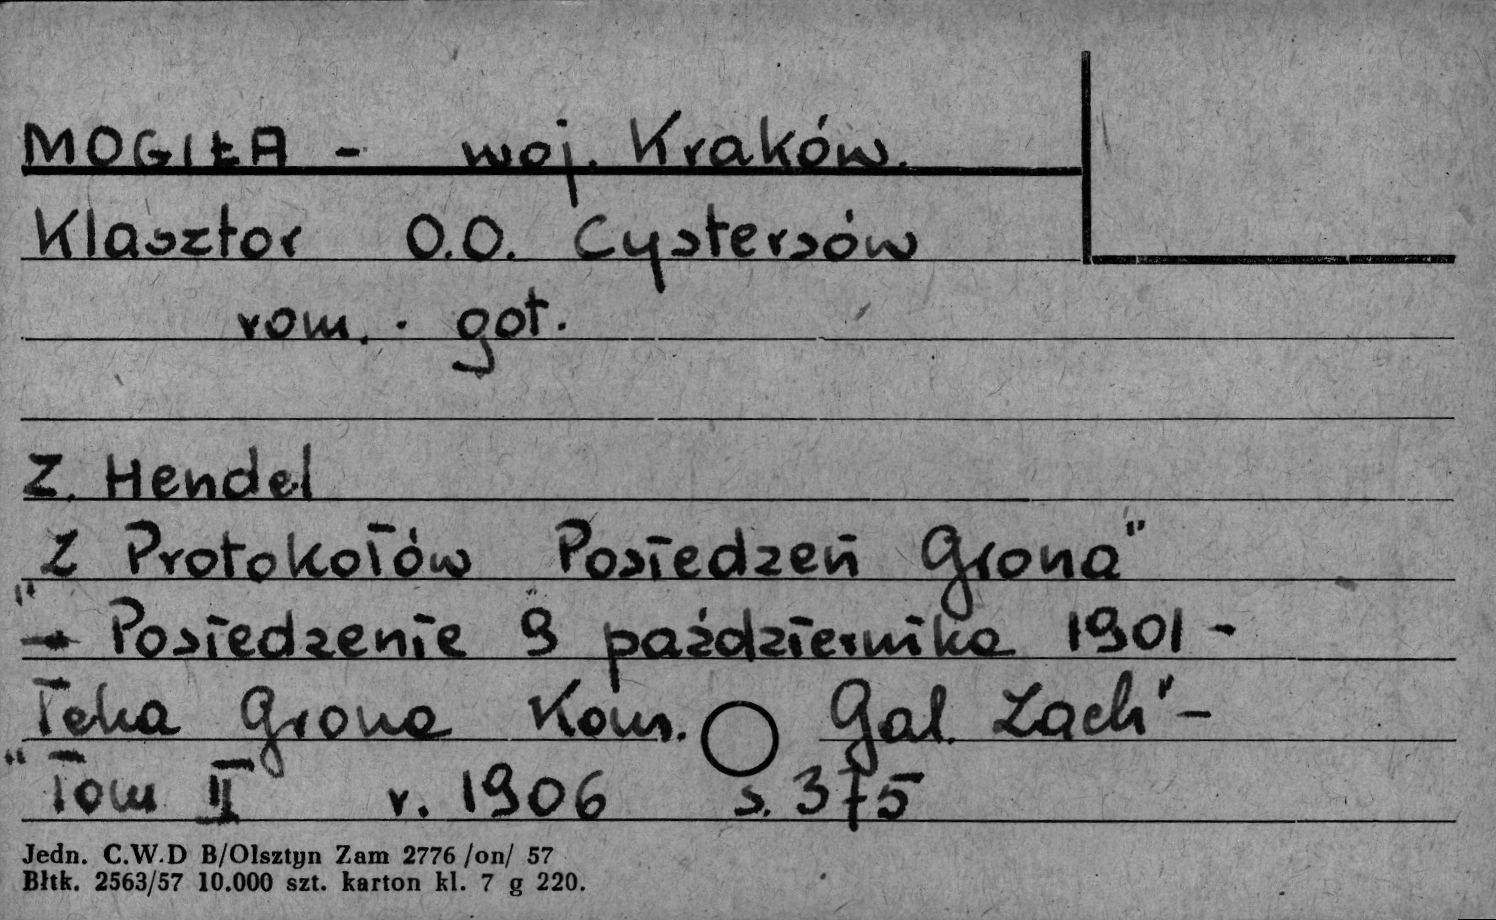 MOGIŁA - woj. Kraków.
Klasztor O.O. Cystersów
rom. . got.
Z. Hendel
Z Protokołów Posiedzeń Grona"
" - Posiedzenie 9 października 1901 -
Teka Grona Kons. Gal. Zach" -
" Tom II r. 1906 s. 375
Jedn. C.W.D B/Olsztyn Zam 2776 /on/ 57
Błtk. 2563/57 10.000 szt. karton kl. 7 g 220.